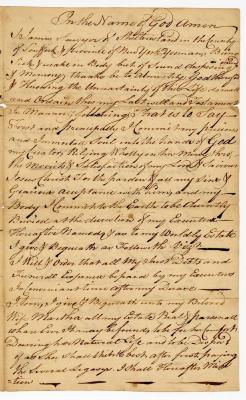 In the Name of God Amen
I James Sawyer of Shelter Island in the County
of Suffolk & Province of New York Yeoman being
Sick & weak in Body but of Sound disposing mind
& Memory, thanks be to Almighty God therefor
& Knowing the Uncertainty of this Life do make
and Ordain this my Last will and Testament
in Manner following That is to Say
First and Principally I Commit my precious
and Immortal Soul into the hands of God
my Creator Relying & hoping in & through
the Merits & Satisfaction of my Lord
Jesus Christ for the pardon of all my Sins &
Gracious Acceptance with him and my
Body I Commit to the Earth to be decently
Buried at the discretion of my Executors
Hereafter Named & as to my Worldly Estate
I give & Bequeath as Followeth Viz
I Will & Order that all My Just Debts and
Funerall Expences be paid by my Executors
in Convenient time after my Decease
Item I give & Bequeath unto my Beloved
Wife Martha all my Estate Real & personal
where Ever It may be found to be for her Comfort
During her Natural Life and to be Disposed
of as She Shall think best after first paying
the Several Legacys I Shall Hereafter Men
tion